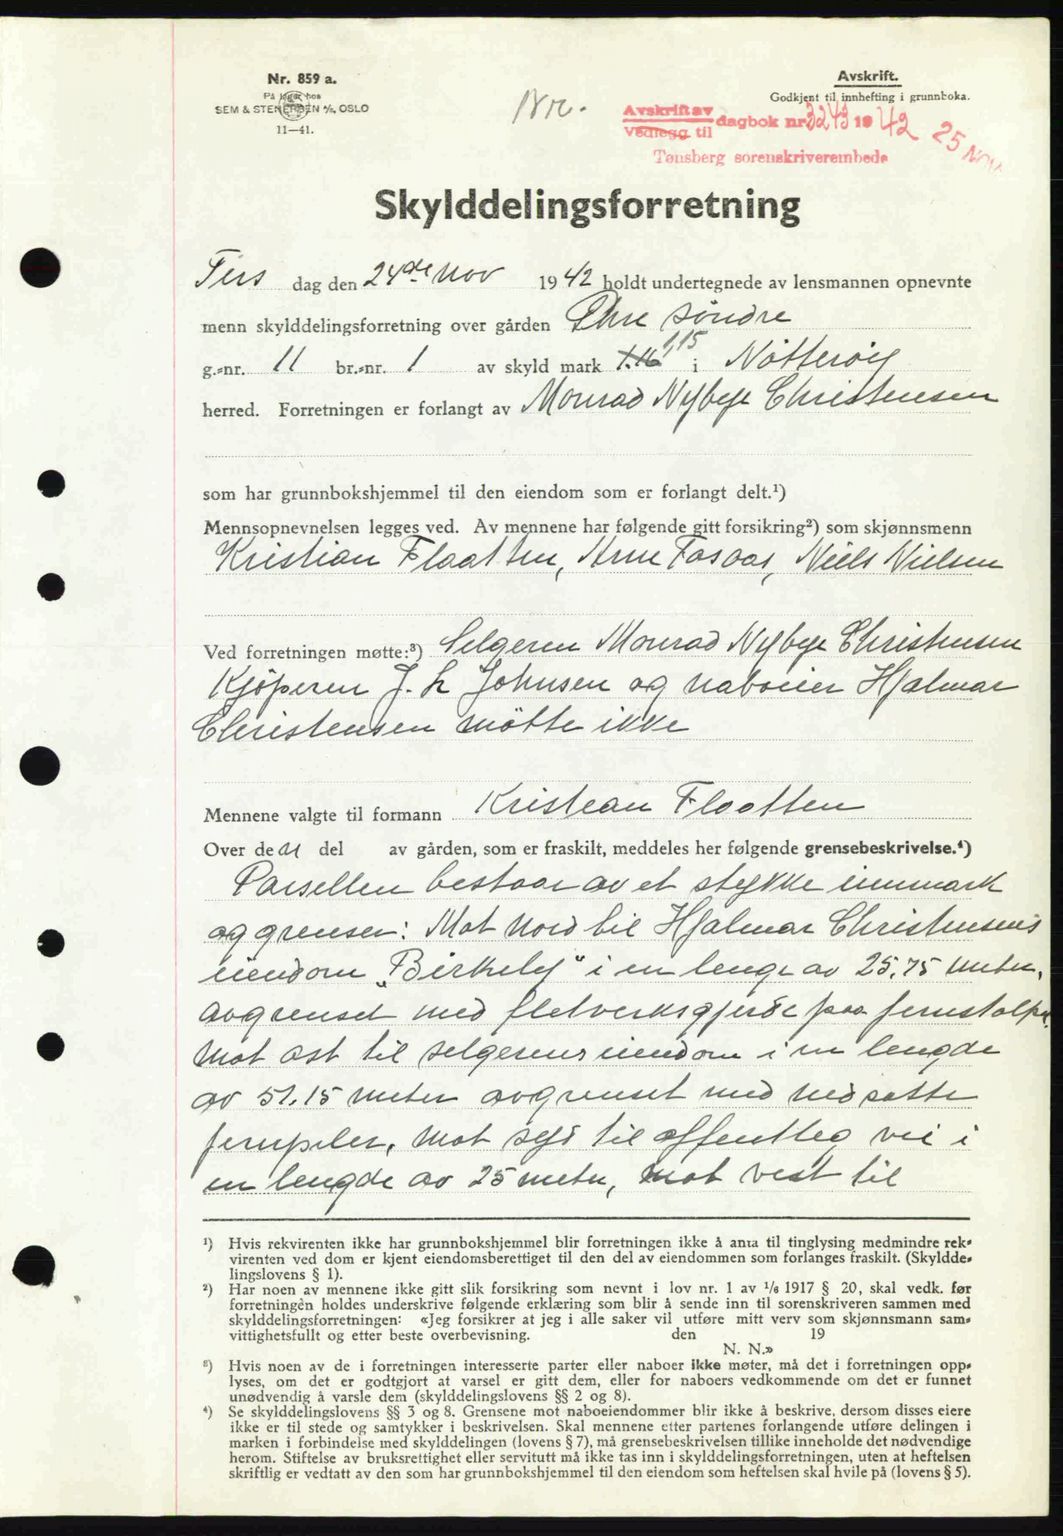 Nr. 859 a.
På lager hos
SEM & STENERSEN A/S, OSLO
11—41.
Avskrift.
Godkjent til innhefting i grunnboka.
Avskrift av
Vedlegg til
dagbok nr 3243 19 42
25 NOV
Tønsberg sorenskriverembede
Skylddelingsforretning
Tirs dag den 24de Nov 1942 holdt undertegnede av lensmannen opnevnte
menn skylddelingsforretning over gården Øhre søndre
g.-nr. 11 br.-nr. 1 av skyld mark 1.16 1,15 i Nötteröy
herred. Forretningen er forlangt av Monrad Nybye Christensen
som har grunnbokshjemmel til den eiendom som er forlangt delt.¹)
Mennsopnevnelsen legges ved. Av mennene har følgende gitt forsikring²) som skjønnsmenn
Kristian Flaatten, Arne Fosaas, Niels Nielsen
Ved forretningen møtte:³) Selgeren Monrad Nybye Christensen
Kjöperen J. L Johnsen og naboeier Hjalmar
Christensen mötte ikke
Mennene valgte til formann Kristian Flaatten
Over de del del av gården, som er fraskilt, meddeles her følgende grensebeskrivelse.⁴)
Parsellen bestaar av et stykke innmark
og grenser: Mot Nord til Hjalmar Christensens
eiendom „Birkely“ i en lengde av 25,75 meter,
avgrenset med fletverksgjerde paa jernstolper.
Mot ost til selgerens eiendom i en lengde
av 51.15 meter avgrenset med nedsatte
jernpeler. Mot syd til offentleg vei i
en lengde av 25 meter, Mot vest til
¹) Hvis rekvirenten ikke har grunnbokshjemmel blir forretningen ikke å anta til tinglysing medmindre rek-
virenten ved dom er kjent eiendomsberettiget til den del av eiendommen som forlanges fraskilt. (Skyldde-
lingslovens § 1).
²) Har noen av mennene ikke gitt slik forsikring som nevnt i lov nr. 1 av ¹/₆ 1917 § 20, skal vedk. før
forretningen holdes underskrive følgende erklæring som blir å sende inn til sorenskriveren sammen med
skylddelingsforretningen: «Jeg forsikrer at jeg i alle saker vil utføre mitt verv som skjønnsmann sam-
vittighetsfullt og etter beste overbevisning. den 19
N. N.»
³) Hvis noen av de i forretningen interesserte parter eller naboer ikke møter, må det i forretningen opp-
lyses, om det er godtgjort at varsel er gitt dem, eller for naboers vedkommende om det er funnet
unødvendig å varsle dem (skylddelingslovens §§ 2 og 8).
⁴) Se skylddelingslovens §§ 3 og 8. Grensene mot naboeiendommer blir ikke å beskrive, dersom disses eiere
ikke er til stede og samtykker i beskrivelsen. Skal mennene etter partenes forlangende utføre delingen i
marken i forbindelse med skylddelingen (lovens § 7), må grensebeskrivelsen tillike inneholde det nødvendige
herom. Stiftelse av bruksrettighet eller servitutt må ikke tas inn i skylddelingsforretningen, uten at heftelsen
skriftlig er vedtatt av den som har grunnbokshjemmel til den eiendom som heftelsen skal hvile på (lovens § 5).